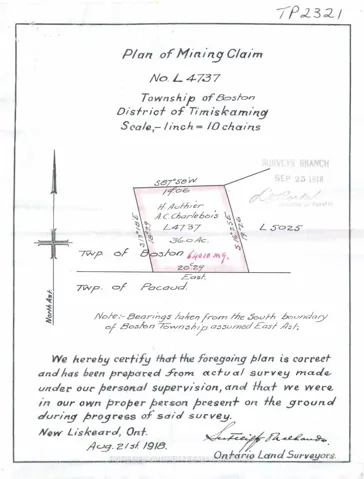 TP2321
Plan of Mining Claim
No. L 4737
Township of Boston
District of Timiskaming
Scale,- 1 inch = 10 chains
SURVEYS BRANCH
SEP 25 1918
S87°58'W
19.06
H. Authier
A.C. Charlebois
L 4737
36.0 Ac.
L 5025
Twp. of Boston
20.29
East.
Twp. of Pacaud.
North Ast.
Note:- Bearings taken from the South boundary
of Boston Township assumed East Ast.
We hereby certify that the foregoing plan is correct
and has been prepared from actual survey made
under our personal supervision, and that we were
in our own proper person present on the ground
during progress of said survey.
New Liskeard, Ont.
Aug. 21st. 1918.
Ontario Land Surveyors.